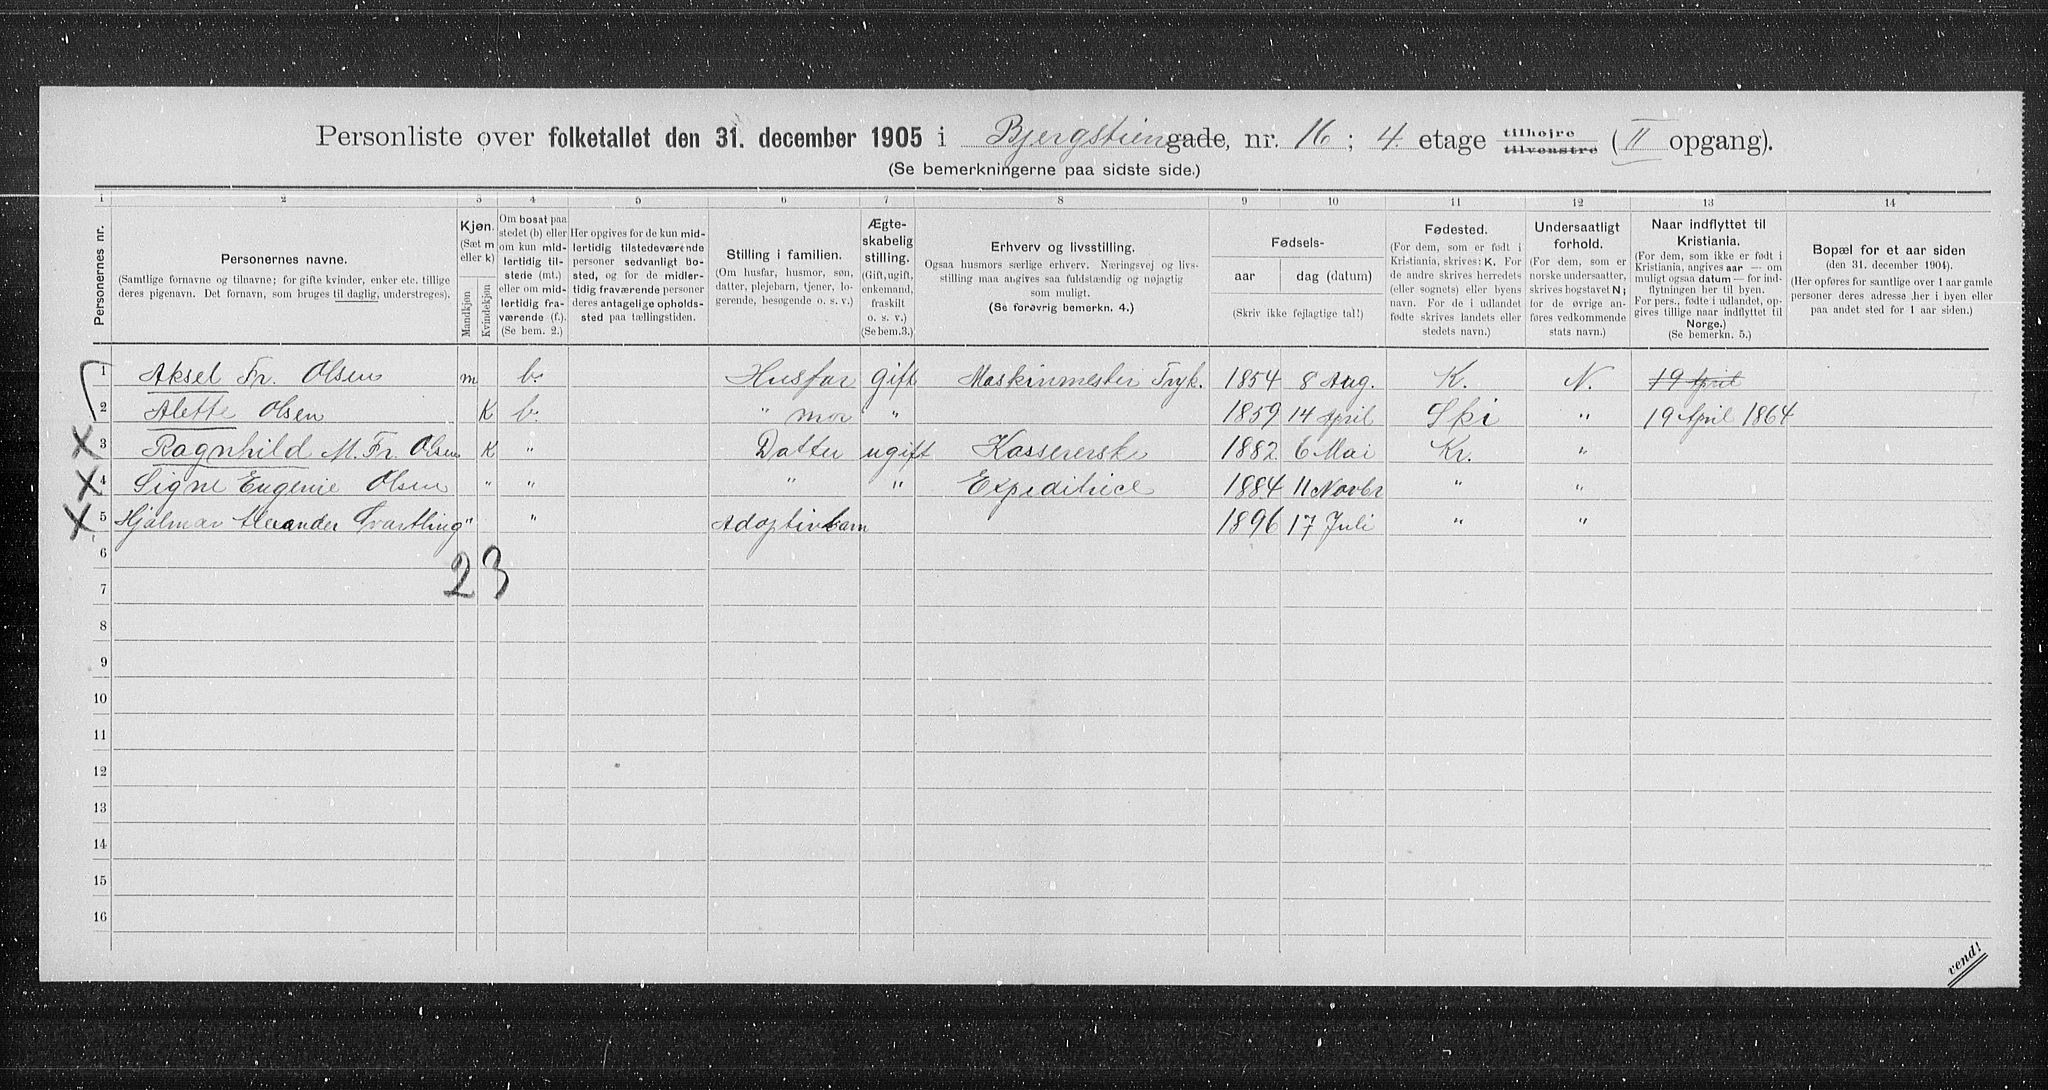 Personliste over folketallet den 31. december 1905 i Bjergstien gade, nr. 16; 4. etage tilhøjre tilvenstre (II opgang).
(Se bemerkningerne paa sidste side.)
1 2 3 4 5 6 7 8 9 10 11 12 13 14
Personernes nr.
Personernes navne.
(Samtlige fornavne og tilnavne; for gifte kvinder, enker etc. tillige
deres pigenavn. Det fornavn, som bruges til daglig, understreges).
Kjøn.
(Sæt m
eller k)
Mandkjøn
Kvindekjøn
Om bosat paa
stedet (b) eller
om kun mid-
lertidig til-
stede (mt.)
eller om mid-
lertidig fra-
værende (f.).
(Se bem. 2.)
Her opgives for de kun mid-
lertidig tilstedeværende
personer sedvanlig bo-
sted, og for de midler-
tidig fraværende personer
deres antagelige opholds-
sted paa tællingstiden.
Stilling i familien.
(Om husfar, husmor, søn,
datter, plejebarn, tjener, lo-
gerende, besøgende o. s. v.)
Ægte-
skabelig
stilling.
(Gift, ugift,
enkemand,
fraskilt
o. s. v.)
(Se bem.3.)
Erhverv og livsstilling.
Ogsaa husmors særlige erhverv. Næringsvej og livs-
stilling maa angives saa fuldstændig og nøjagtig
som muligt.
(Se forøvrig bemerkn. 4.)
Fødsels-
aar
dag (datum)
(Skriv ikke fejlagtige tal!)
Fødested.
(For dem, som er født i
Kristiania, skrives: K. For
de andre skrives herredets
(eller sognets) eller byens
navn. For de i udlandet
fødte skrives landets eller
stedets navn.)
Undersaatligt
forhold.
(For dem, som er
norske undersaatter,
skrives bogstavet N;
for de øvrige an-
føres vedkommende
stats navn.)
Naar indflyttet til
Kristiania.
(For dem, som ikke er født i
Kristiania, angives aar — om
muligt ogsaa datum — for ind-
flytningen her til byen.
For pers., fødte i udlandet, op-
gives tillige naar indflyttet til
Norge.)
(Se bemerkn. 5.)
Bopæl for et aar siden
(den 31. december 1904).
(Her opføres for samtlige over 1 aar gamle
personer deres adresse her i byen eller
paa andet sted for 1 aar siden.)
1 Aksel Fr. Olsen m b. Husfar gift Maskinmester Tryk. 1854 8 Aug. K. N. 19 April
2 Alette Olsen K b. " mor " 1859 14 April Ski " 19 April 1864
X 3 Ragnhild M. Fr. Olsen K " Datter ugift Kassererske 1882 6 Mai Kr. "
X 4 Signe Eugenie Olsen " " " " Expeditrice 1884 11 Novbr " "
X 5 Hjalmar Alexander " " Adoptivbarn 1896 17 Juli " "
6
2 3
7
8
9
10
11
12
13
14
15
16
vend!